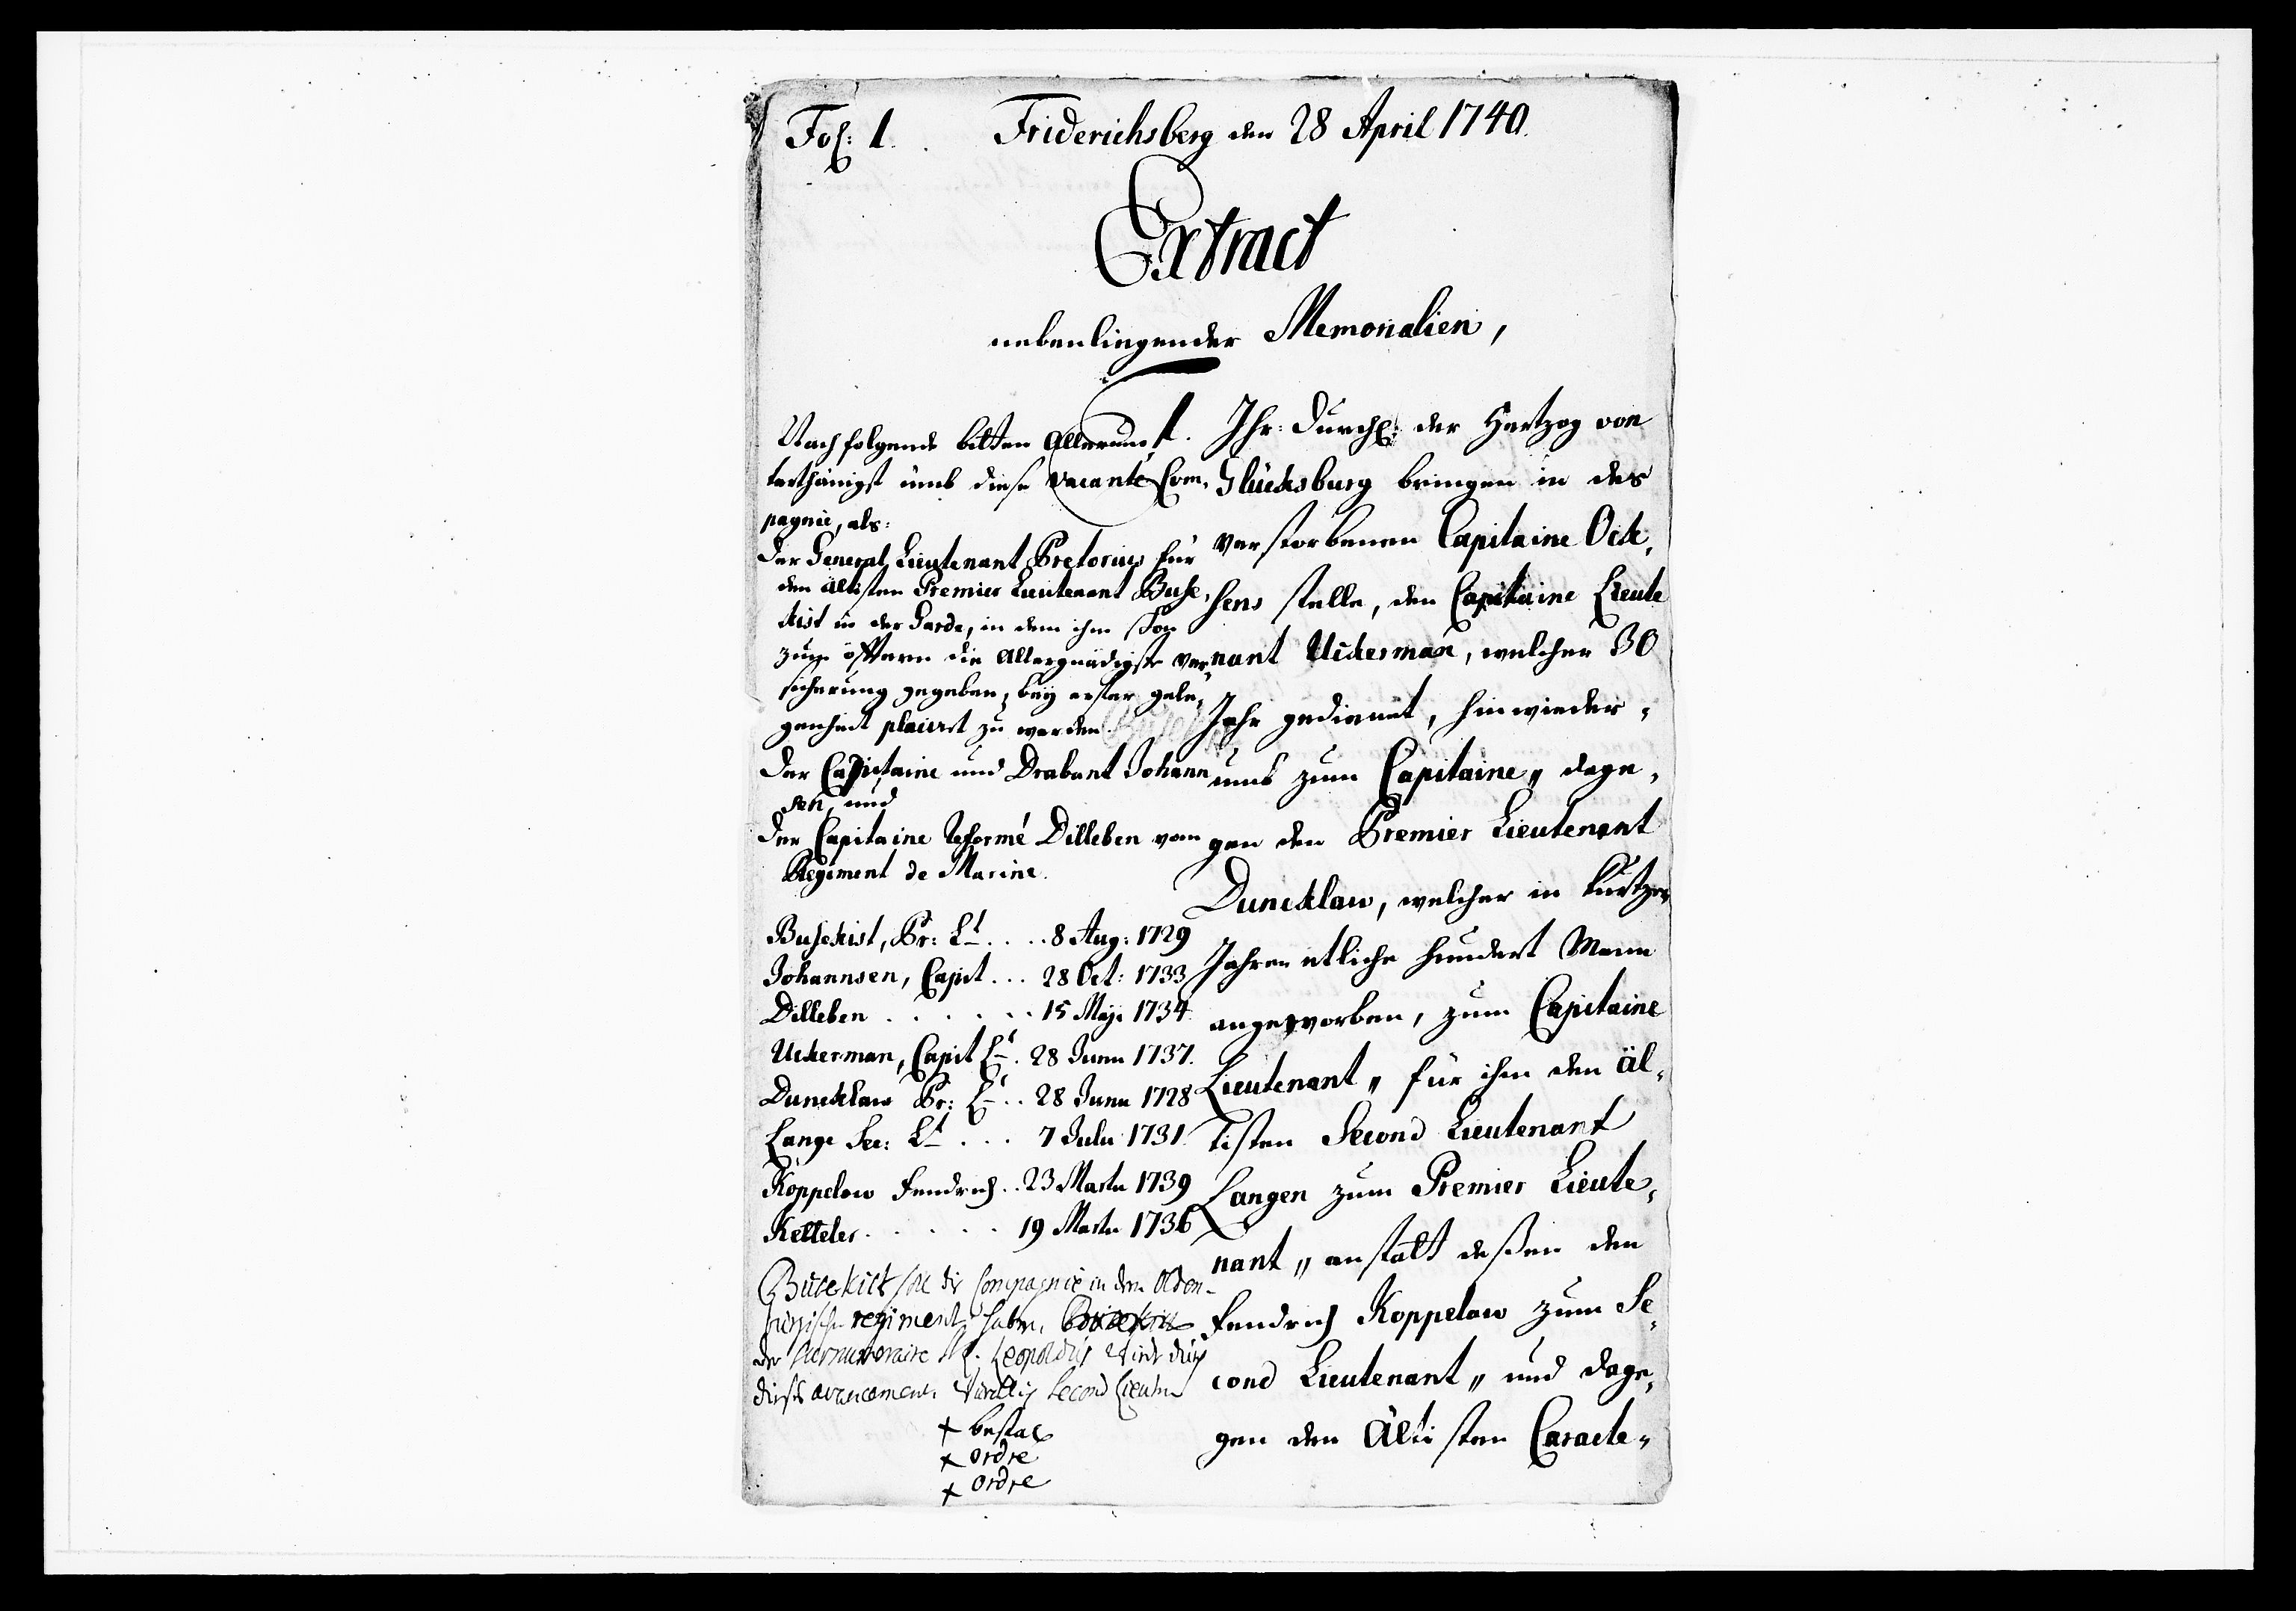 Fol: 1.
Friderichsberg den 28 April 1740.
Extract
nebenliegender Memorialien,
Nachfolgende bitten Allerun-
terthänigst umb diese vacante Com-
pagnie, als:
Der General Lieutenant Pretorius für
den ältisten Premier Lieutenant Buse-
kist in der Garde, in dem ihm schon
zum öfftern die Allergnädigste ver-
sicherung gegeben, bey erster gele-
genheit placirt zu werden.
Der Capitaine und Drabant Johann-
sen, und
Der Capitaine Reformé Dilleben vom
Regiment de Marine.
Busekist, Pr: Lt. . . . 8 Aug: 1729
Johannsen, Capit . . . 28 Oct: 1733
Dilleben . . . . . . 15 Maji 1734
Uckerman, Capit Lt. . 28 Junii 1737.
Duncklaw Pr: Lt. . . 28 Junii 1728
Lange Sec: Lt . . . 7 Julii 1731.
Koppelow Fendrich . . 23 Martii 1739
Ketteler . . . . . 19 Martii 1736
Busekist soll die Compagnie in dem Olden-
burgische regiment haben.
der surnumeraire Leopoldus wird durch
dieses avancement würcklich Second Lieutn
+ bestal
+ ordre
+ ordre
1. Ihr: Durchl: der Hertzog von
Glücksburg bringen in des
verstorbenen Capitaine Ock-
sens stelle, den Capitaine Lieute
nant Uckerman, welcher 30
Jahr gedienet, hinwieder-
umb zum Capitaine, dage-
gen den Premier Lieutenant
Duncklaw, welcher in kurtzen
Jahren etliche hundert Mann
angeworben, zum Capitaine
Lieutenant, für ihm den äl-
tisten Second Lieutenant
Langen zum Premier Lieute-
nant, anstatt deßen den
Fendrich Koppelow zum Se-
cond Lieutenant, und dage-
gen den Ältisten Caracte-